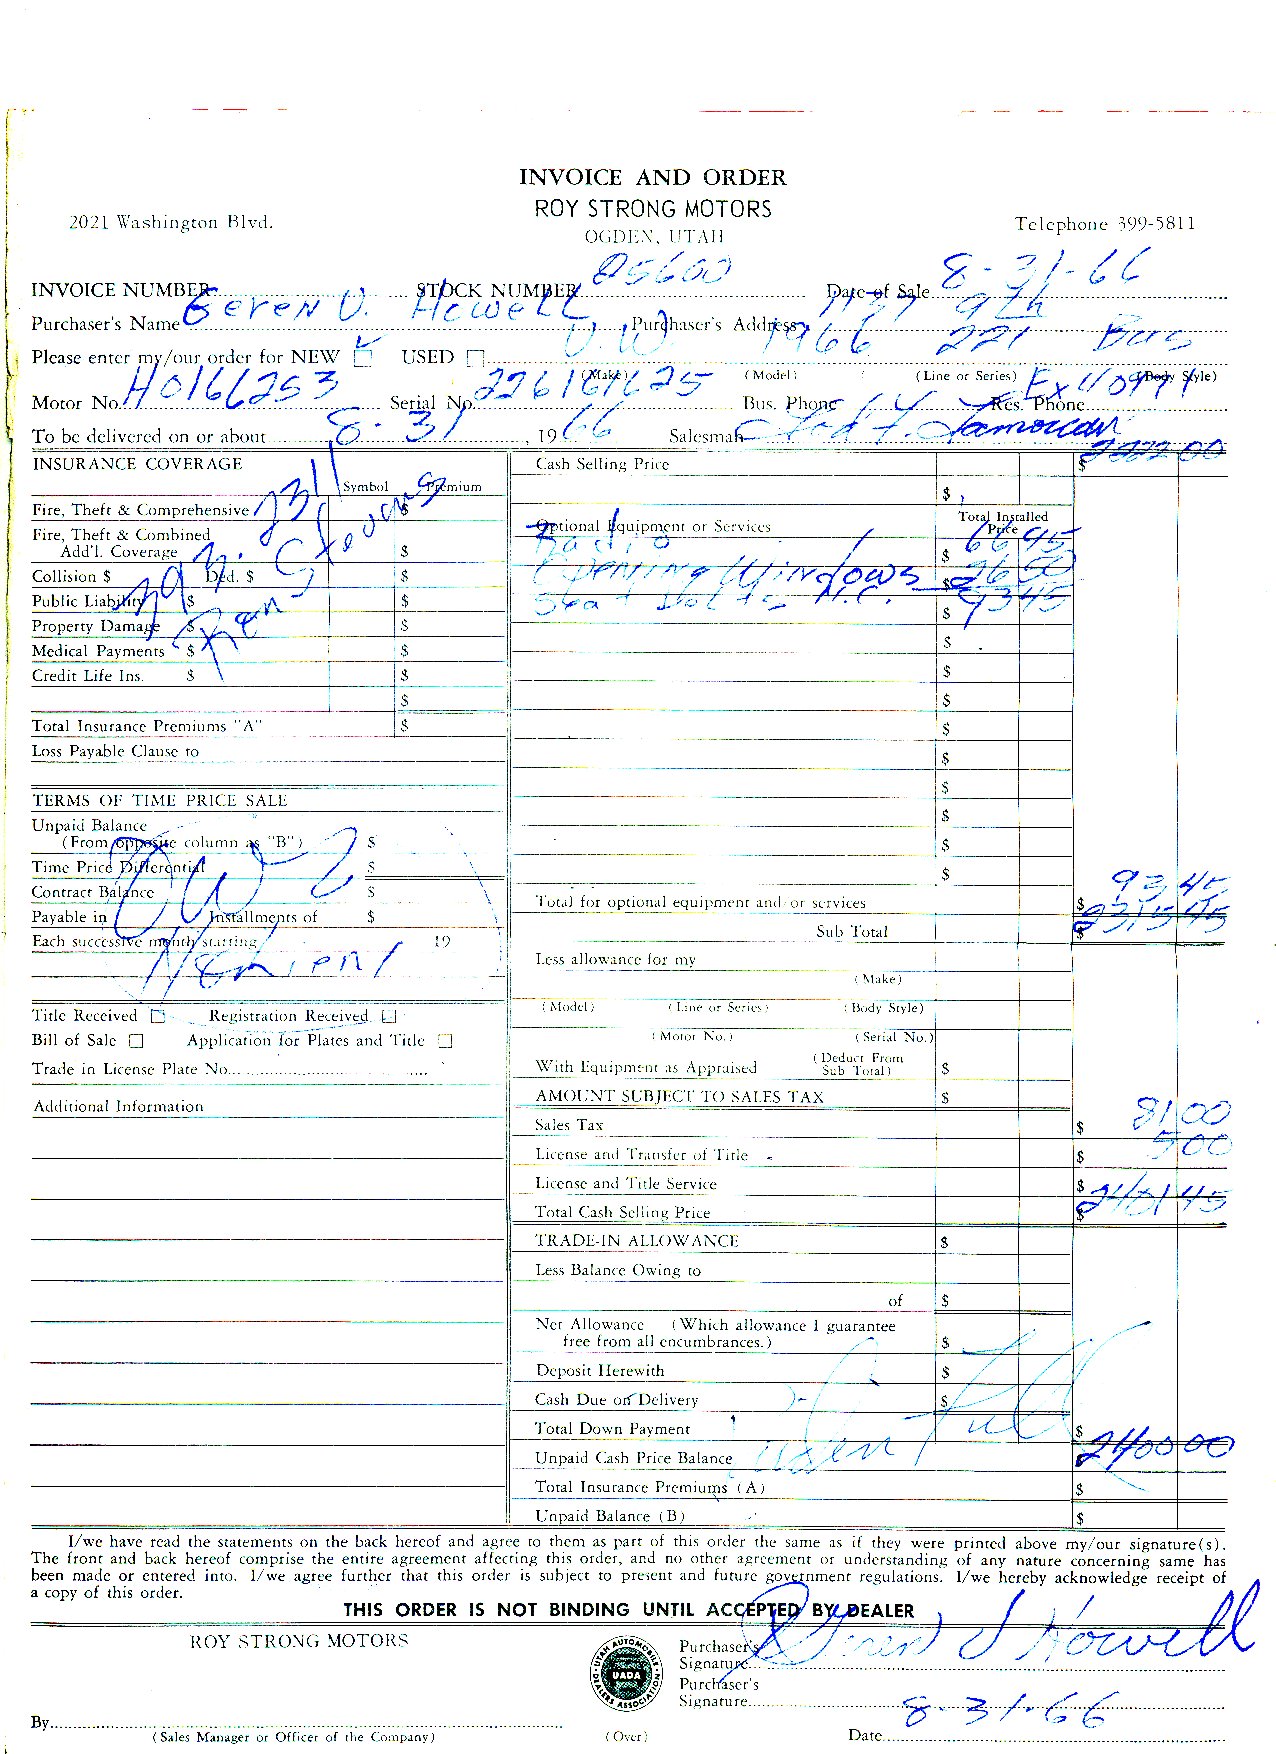 INVOICE AND ORDER
ROY STRONG MOTORS
2021 Washington Blvd.
OGDEN, UTAH
Telephone 399-5811
INVOICE NUMBER STOCK NUMBER 85600 Date of Sale 8-31-66
Purchaser's Name Geren J. Howell Purchaser's Address 9th
Please enter my/our order for NEW USED V.W 1966 221 Bus
(Make) (Model) (Line or Series) (Body Style)
Motor No. H0166253 Serial No. 226161625 Bus. Phone Res. Phone
To be delivered on or about 8-31, 1966 Salesman
INSURANCE COVERAGE
Symbol Premium
Fire, Theft & Comprehensive $
Fire, Theft & Combined
Add'l. Coverage $
Collision $ Ded. $ $
Public Liability $ $
Property Damage $ $
Medical Payments $ $
Credit Life Ins. $ $
$
Total Insurance Premiums "A" $
Loss Payable Clause to
TERMS OF TIME PRICE SALE
Unpaid Balance
(From opposite column as "B") $
Time Price Differential $
Contract Balance $
Payable in Installments of $
Each successive month starting 19
Title Received Registration Received
Bill of Sale Application for Plates and Title
Trade in License Plate No.
Additional Information
Cash Selling Price $ 222200
$
Optional Equipment or Services Total Installed Price
Radio $ 66 95
Opening Windows $ 26 50
Seat Belts N.C. $ 93 45
$
$
$
$
$
$
$
$
$
Total for optional equipment and or services $ 93 45
Sub Total $ 2315 45
Less allowance for my
(Make)
(Model) (Line or Series) (Body Style)
(Motor No.) (Serial No.)
With Equipment as Appraised (Deduct From Sub Total) $
AMOUNT SUBJECT TO SALES TAX $
Sales Tax $ 81 00
License and Transfer of Title $ 5 00
License and Title Service $
Total Cash Selling Price $ 2401 45
TRADE-IN ALLOWANCE $
Less Balance Owing to
of $
Net Allowance (Which allowance I guarantee
free from all encumbrances.) $
Deposit Herewith $
Cash Due on Delivery $
Total Down Payment $
Unpaid Cash Price Balance $ 2400 00
Total Insurance Premiums (A) $
Unpaid Balance (B) $
I/we have read the statements on the back hereof and agree to them as part of this order the same as if they were printed above my/our signature(s).
The front and back hereof comprise the entire agreement affecting this order, and no other agreement or understanding of any nature concerning same has
been made or entered into. I/we agree further that this order is subject to present and future government regulations. I/we hereby acknowledge receipt of
a copy of this order.
THIS ORDER IS NOT BINDING UNTIL ACCEPTED BY DEALER
ROY STRONG MOTORS
UTAH AUTOMOBILE DEALERS ASSOCIATION
UADA
Purchaser's
Signature Geren J Howell
Purchaser's
Signature
By
(Sales Manager or Officer of the Company)
(Over)
Date 8-31-66